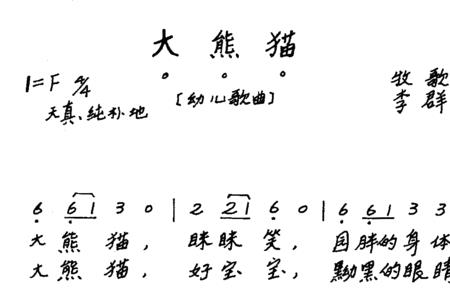 大熊猫
1=F 4/4
[幼儿歌曲]
牧歌
李群
天真、纯朴地
6 6 1 3 0 | 2 2 1 6 0 | 6 6 1 3 3
大熊猫, 眯眯笑, 圆胖的身体
大熊猫, 好宝宝, 黝黑的眼睛